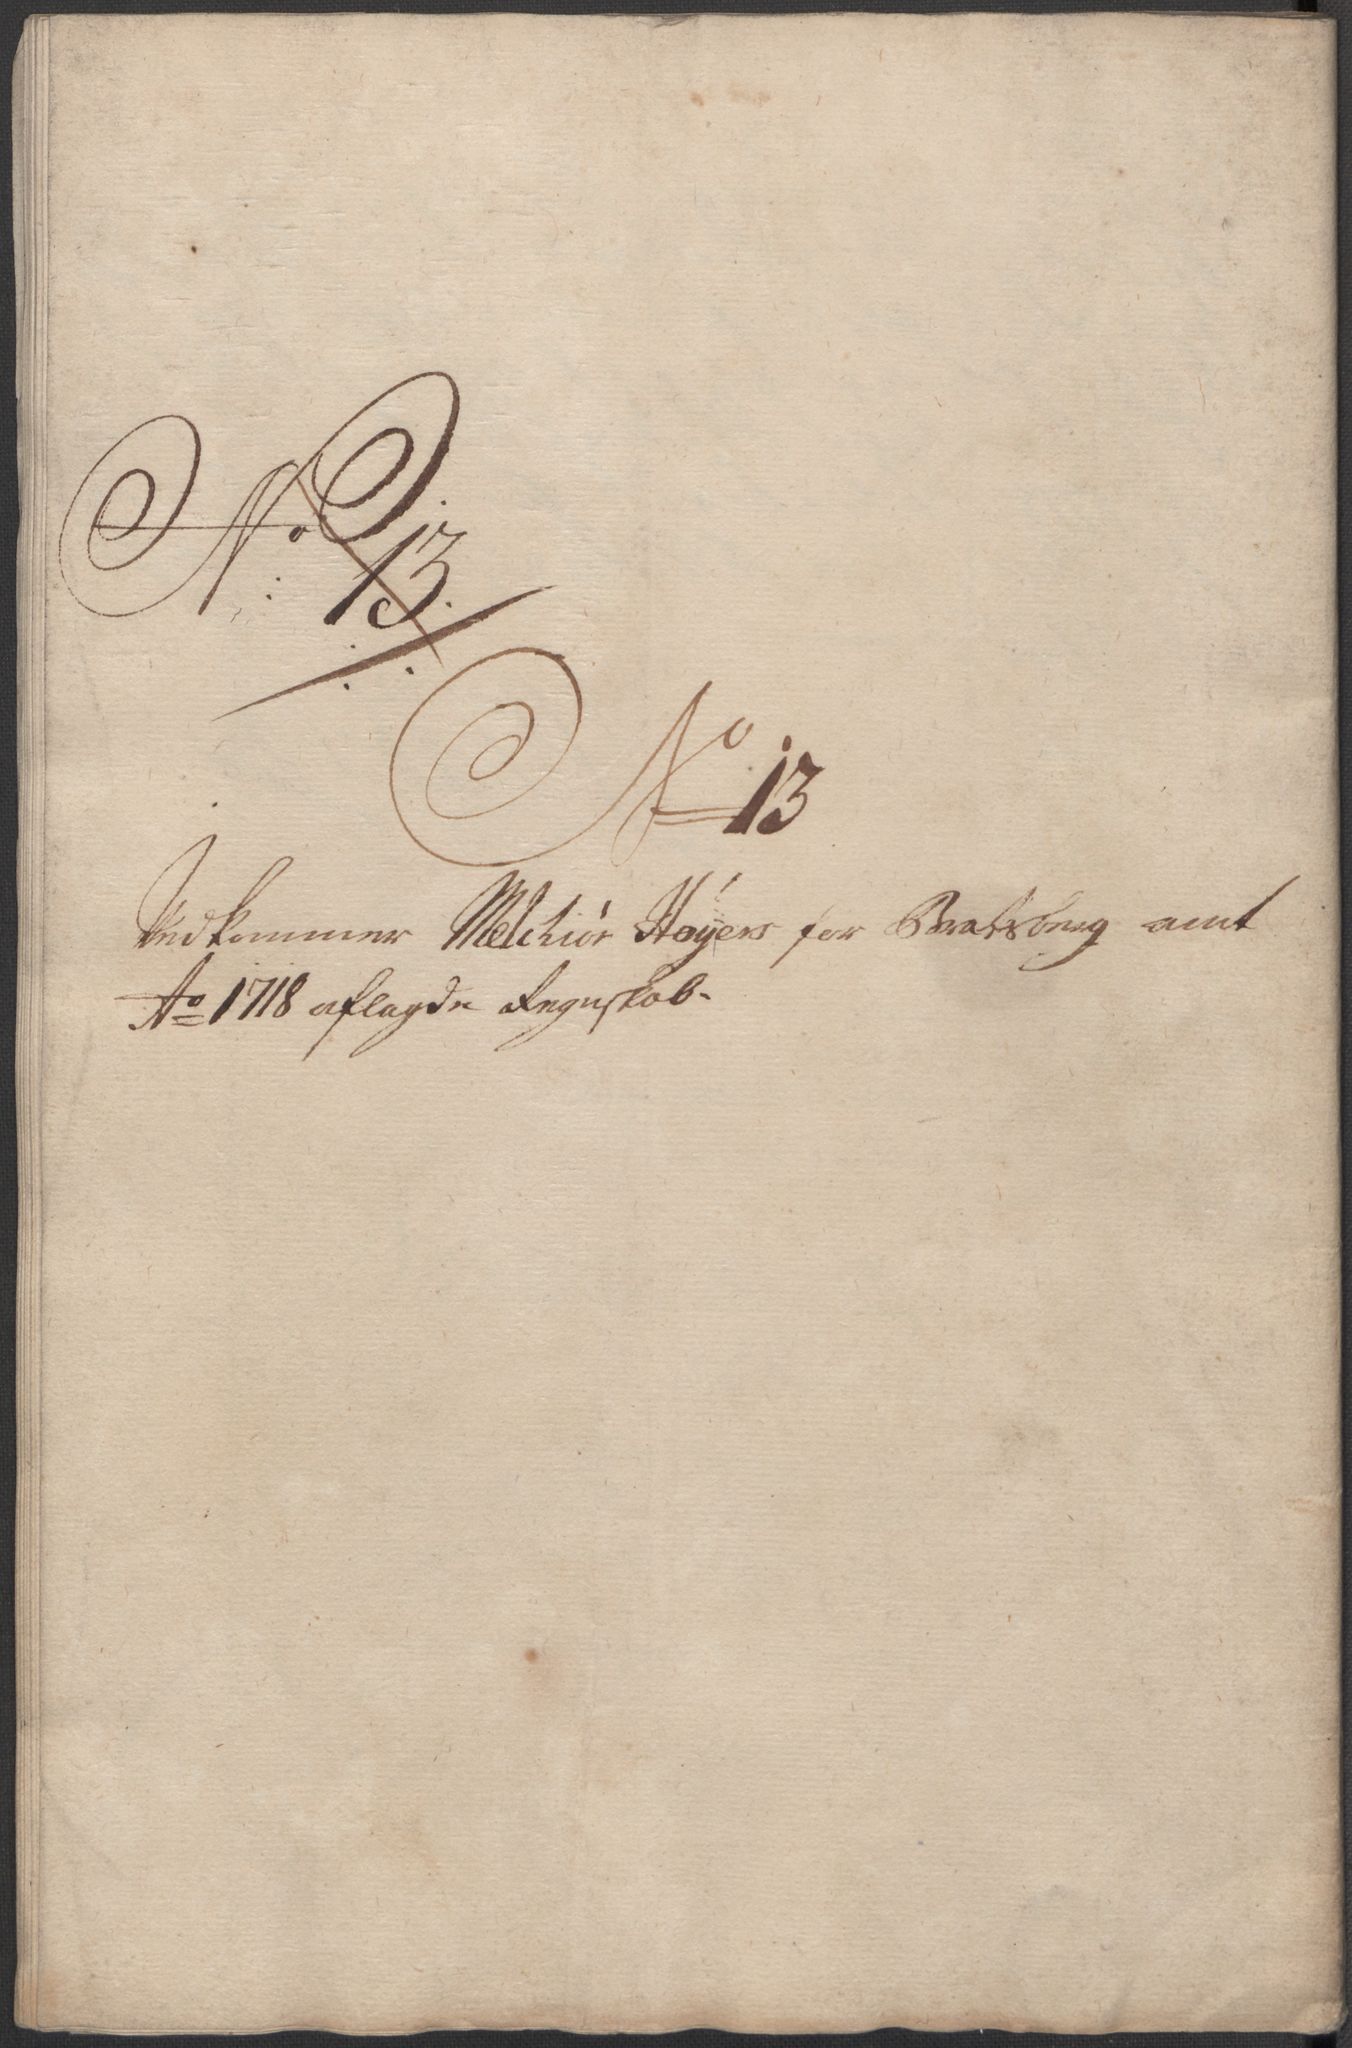 No 13.
No 13
Vedkommer Melchior Høyers for Bratsberg amt
Ao 1718 aflagde Regnskab.